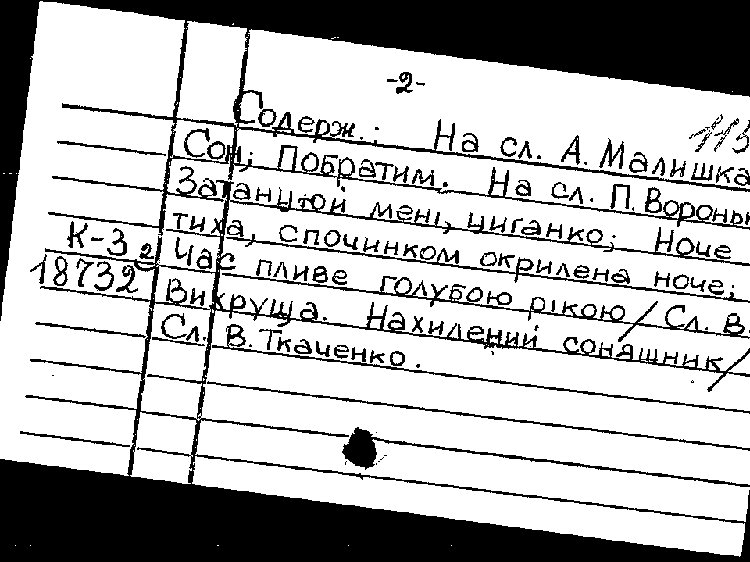 -2-
113
Содерж.: На сл. А. Малишка
Сон; Побратим. На сл. П. Вороньк
Затанцюй мені, циганко; Ноче
тиха, спочинком окрилена ноче;
К-3 2 Час пливе голубою рікою/ Сл. В.
18732 Вихруща. Нахилений соняшник/
Сл. В. Ткаченко.